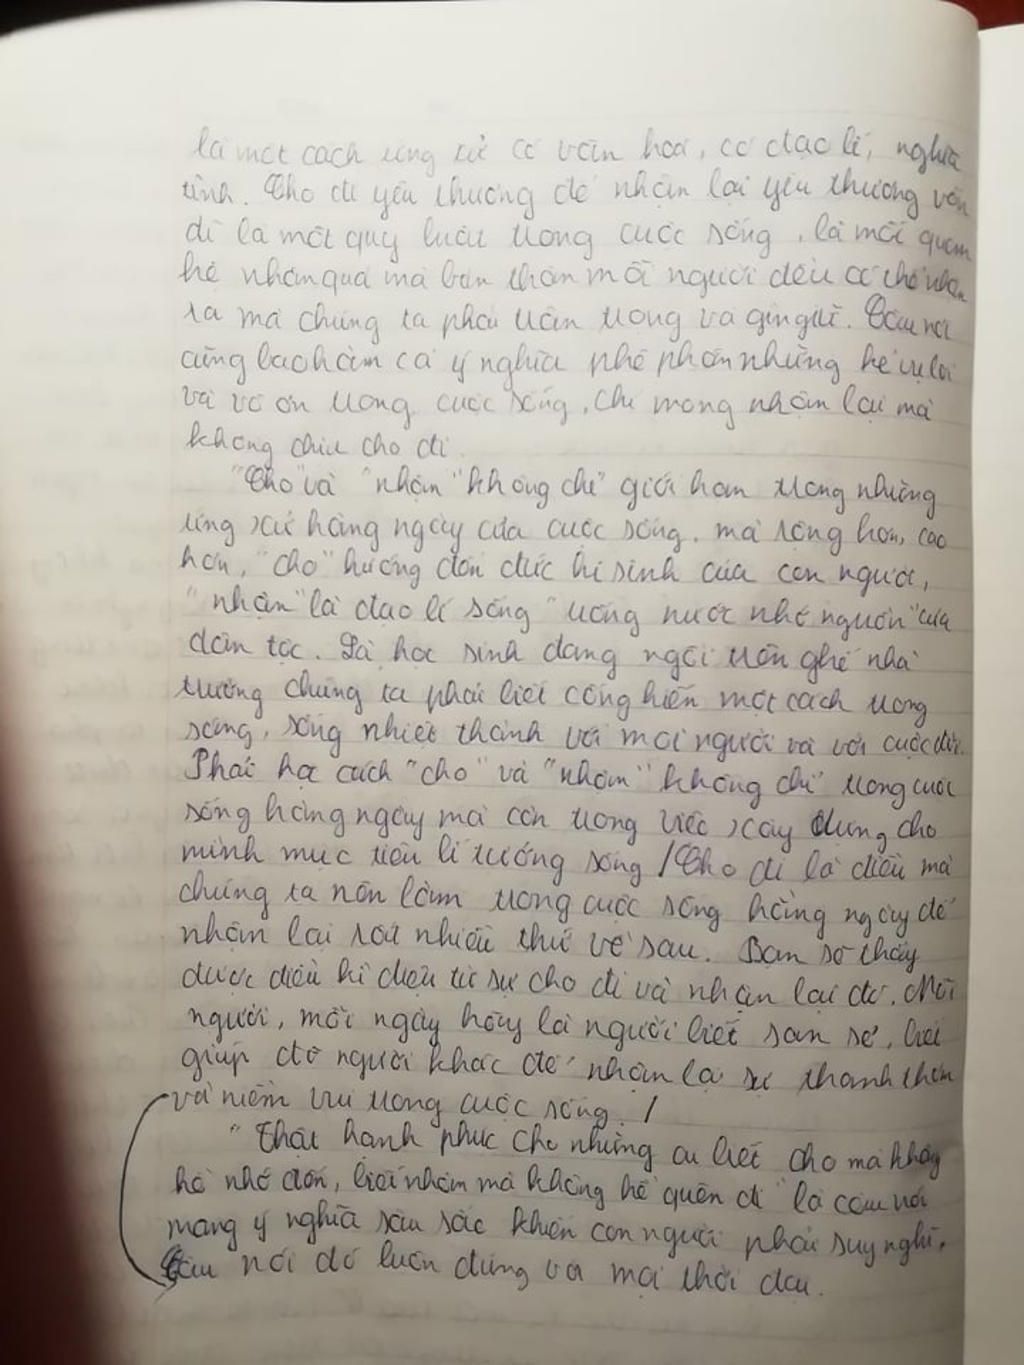 là một cách ứng xử có văn hoá, có đạo lí, nghĩa
tình. Cho đi yêu thương để nhận lại yêu thương vốn
dĩ là một quy luật trong cuộc sống, là mối quan
hệ nhân quả mà bản thân mỗi người đều có thể nhận
ra mà chúng ta phải trân trọng và gìn giữ. Câu nói
cũng bao hàm cả ý nghĩa phê phán những kẻ vụ lợi
và vô ơn trong cuộc sống, chỉ mong nhận lại mà
không chịu cho đi.
"Cho" và "nhận" không chỉ giới hạn trong những
ứng xử hằng ngày của cuộc sống, mà rộng hơn, cao
hơn, "cho" hướng đến đức hi sinh của con người,
"nhận" là đạo lí sống "uống nước nhớ nguồn" của
dân tộc. Là học sinh đang ngồi trên ghế nhà
trường chúng ta phải biết cống hiến một cách trong
sáng, sống nhiệt thành với mọi người và với cuộc đời.
Phải học cách "cho" và "nhận" không chỉ trong cuộc
sống hằng ngày mà còn trong việc xây dựng cho
mình mục tiêu lí tưởng sống / Cho đi là điều mà
chúng ta nên làm trong cuộc sống hằng ngày để
nhận lại rất nhiều thứ về sau. Bạn sẽ thấy
được điều kì diệu từ sự cho đi và nhận lại đó. Mỗi
người, mỗi ngày hãy là người biết san sẻ, biết
giúp đỡ người khác để nhận lại sự thanh thản
và niềm vui trong cuộc sống. /
"Thật hạnh phúc cho những ai biết cho mà không
hề nhớ đến, biết nhận mà không hề quên đi" là câu nói
mang ý nghĩa sâu sắc khiến con người phải suy nghĩ.
Câu nói đó luôn đúng với mọi thời đại.